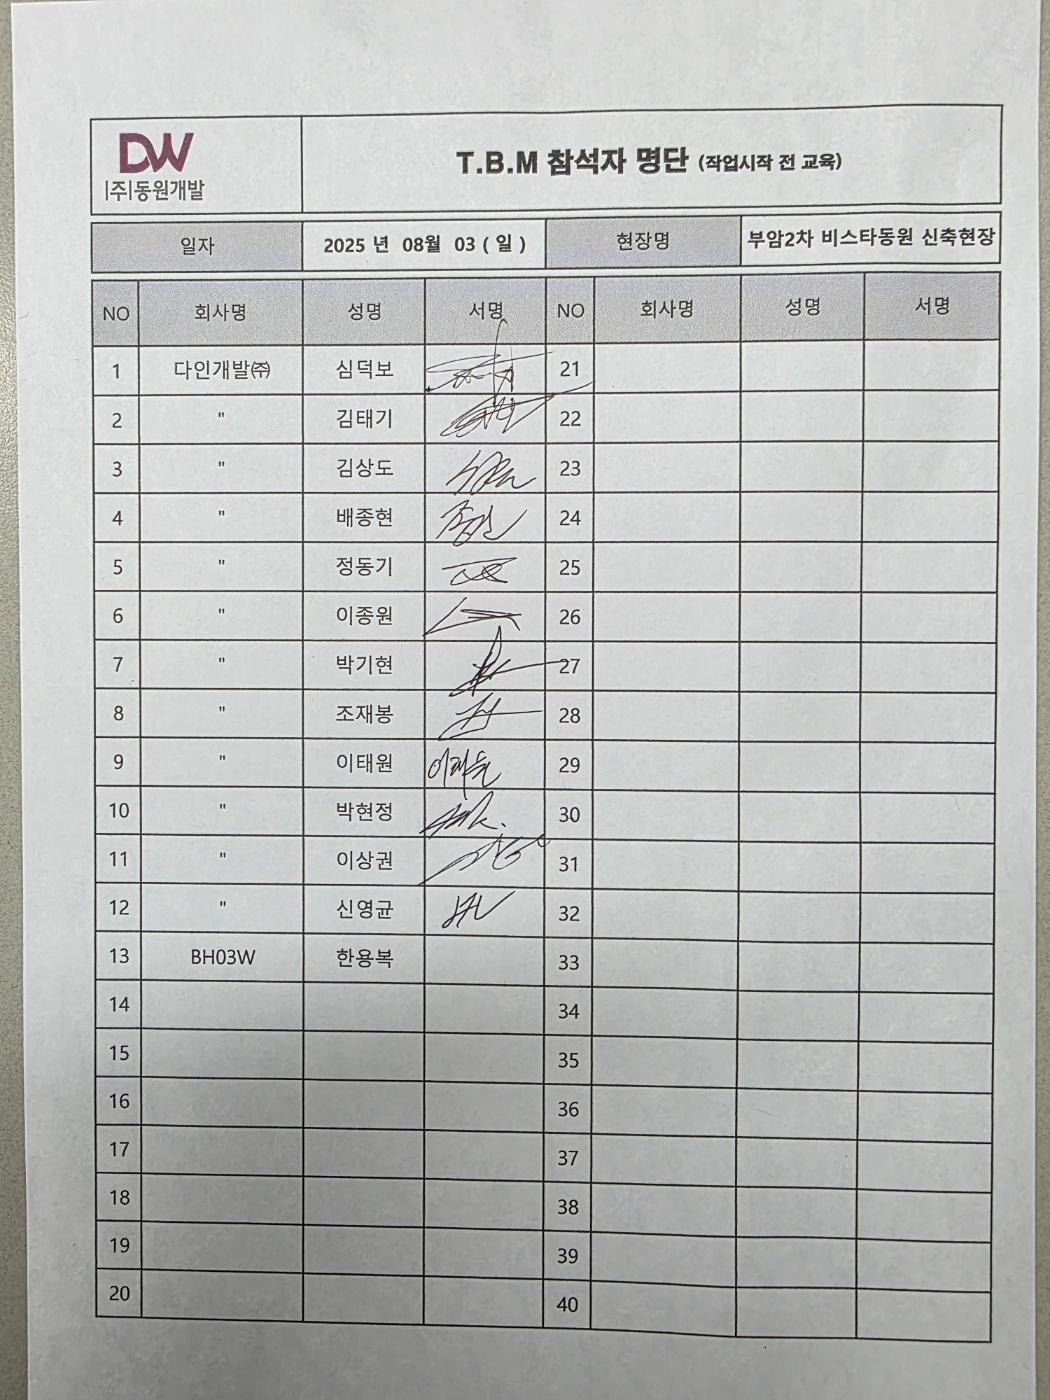 DW
(주)동원개발
T.B.M 참석자 명단 (작업시작 전 교육)
일자 2025 년 08월 03 ( 일 ) 현장명 부암2차 비스타동원 신축현장
NO 회사명 성명 서명 NO 회사명 성명 서명
1 다인개발㈜ 심덕보 21
2 " 김태기 22
3 " 김상도 23
4 " 배종현 24
5 " 정동기 25
6 " 이종원 26
7 " 박기현 27
8 " 조재봉 28
9 " 이태원 29
10 " 박현정 30
11 " 이상권 31
12 " 신영균 32
13 BH03W 한용복 33
14 34
15 35
16 36
17 37
18 38
19 39
20 40